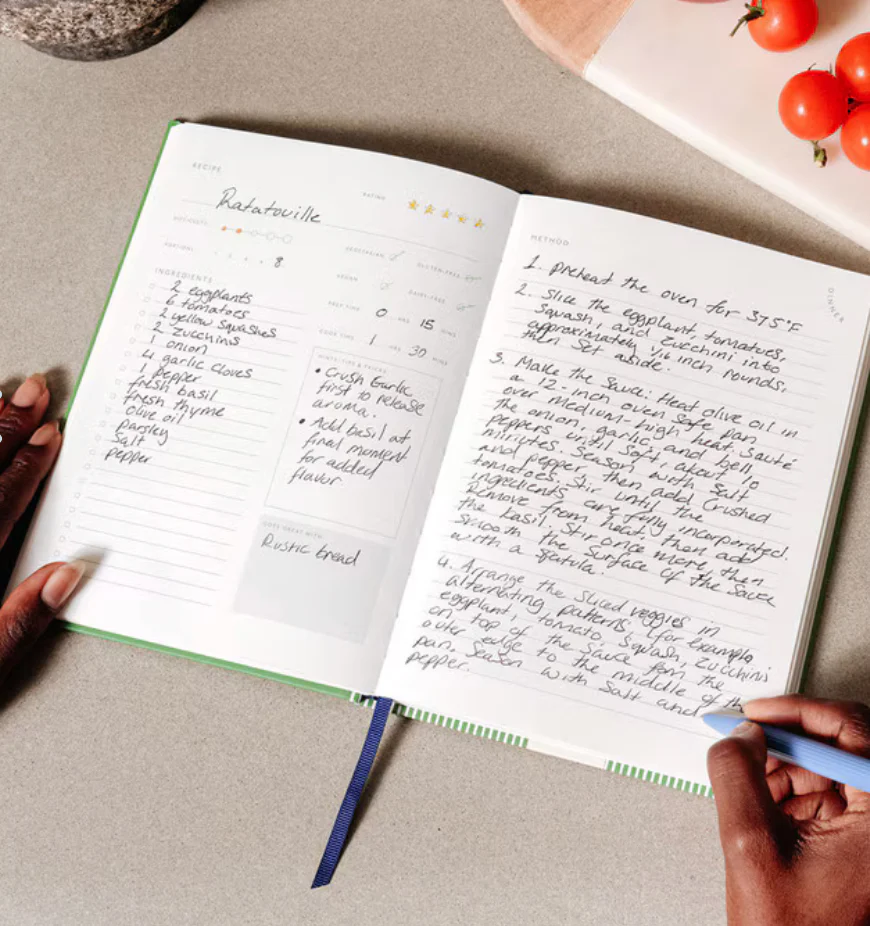 RECIPE
Ratatouille
RATING
DIFFICULTY
PORTIONS
8
VEGETARIAN
GLUTEN-FREE
VEGAN
DAIRY-FREE
PREP TIME
0 HRS 15 MINS
COOK TIME
1 HRS 30 MINS
INGREDIENTS
2 eggplants
6 tomatoes
2 yellow squashes
2 zucchinis
1 onion
4 garlic cloves
1 pepper
fresh basil
fresh thyme
olive oil
parsley
salt
pepper
HINTS, TIPS & TRICKS
• Crush Garlic
first to release
aroma.
• Add basil at
final moment
for added
flavor
GOES GREAT WITH
Rustic bread
METHOD
DINNER
1. preheat the oven for 375°F
2. Slice the eggplant, tomatoes,
squash, and zucchini into
approximately 1/16 inch rounds,
then set aside.
3. Make the sauce: Heat olive oil in
a 12-inch oven safe pan
over medium-high heat. Sauté
the onion, garlic, and bell
peppers until soft, about 10
minutes. Season with salt
and pepper, then add crushed
tomatoes. Stir until the
ingredients are fully incorporated.
Remove from heat, then add
the basil. Stir once more, then
smooth the surface of the sauce
with a spatula.
4. Arrange the sliced veggies in
alternating patterns, (for example
eggplant, tomato, squash, zucchini)
on top of the sauce from the
outer edge to the middle of the
pan. Season with salt and
pepper.